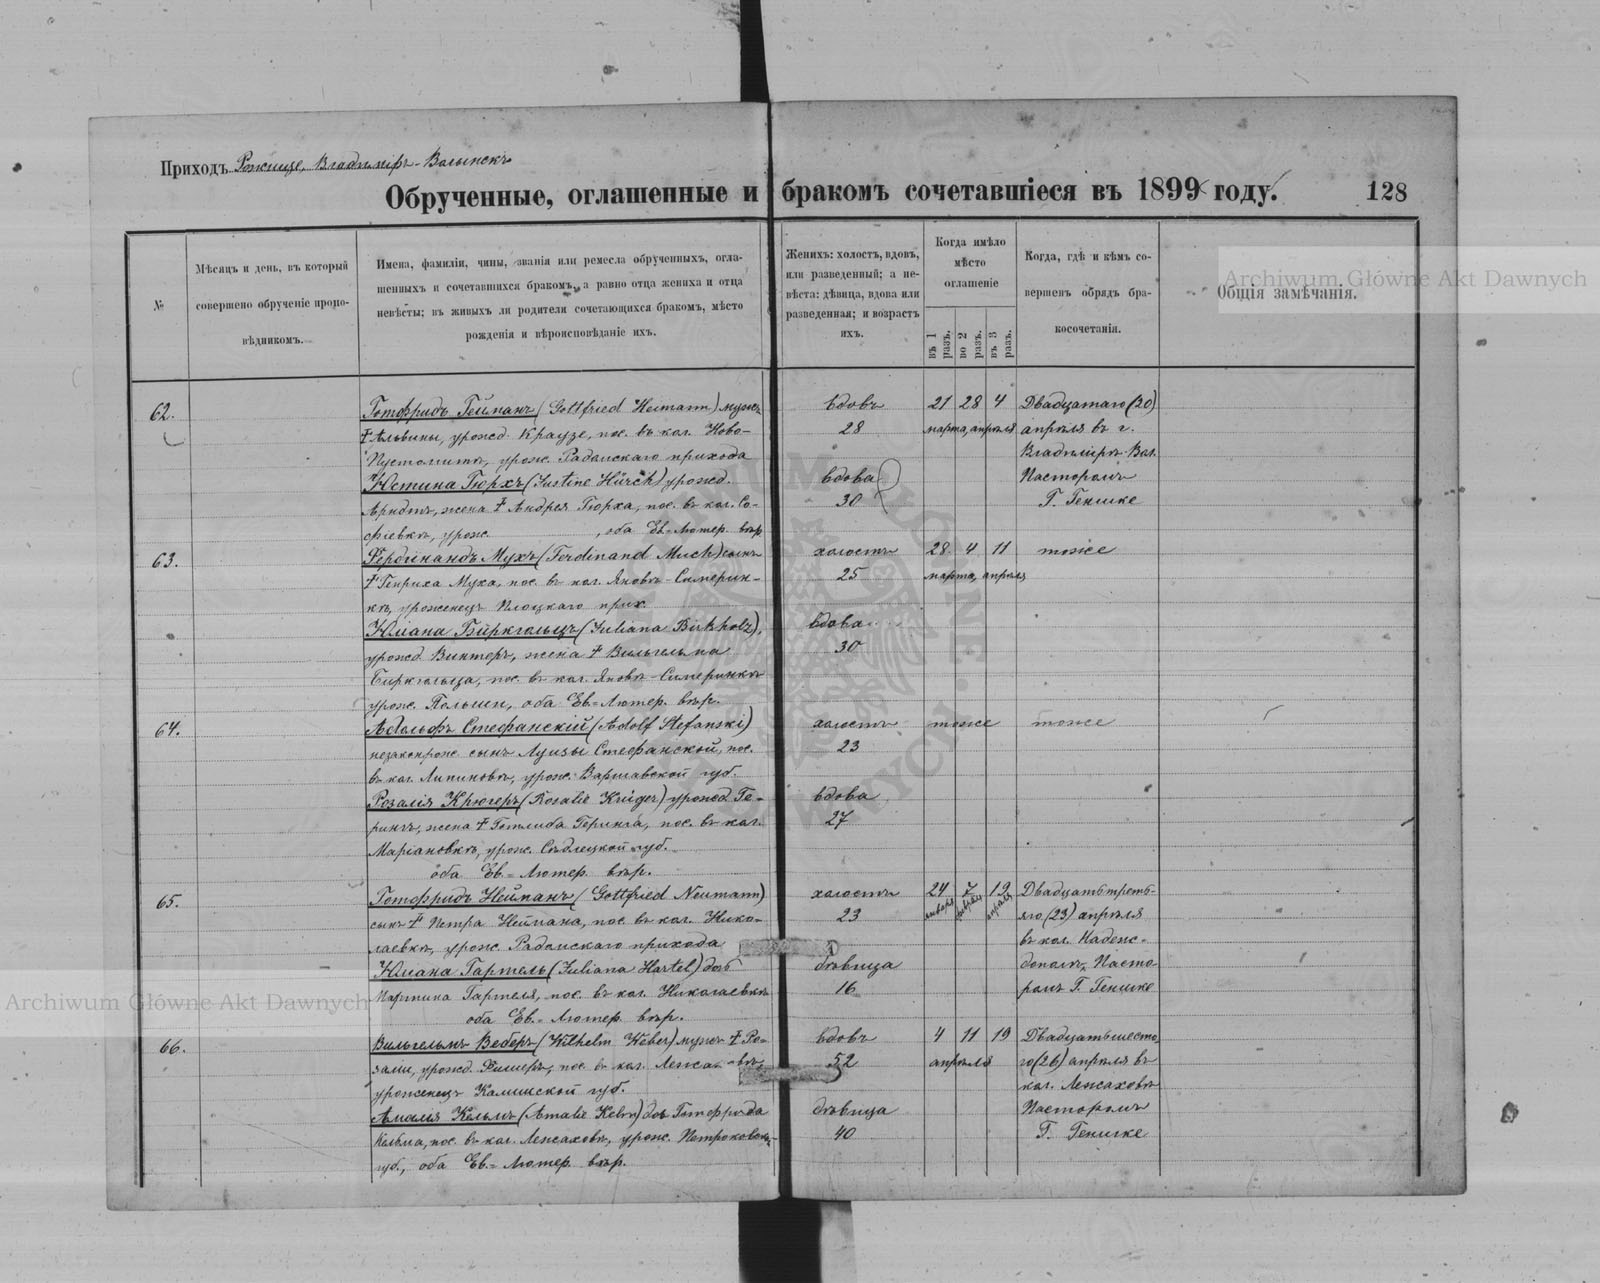 Приходъ Рожище, Владиміръ-Волынскъ
Обрученные, оглашенные и бракомъ сочетавшіеся въ 1899 году.
128
№
Мѣсяцъ и день, въ который
совершено обрученіе пропо-
вѣдникомъ.
Имена, фамиліи, чины, званія или ремесла обрученныхъ, огла-
шенныхъ и сочетавшихся бракомъ, а равно отца жениха и отца
невѣсты; въ живыхъ ли родители сочетающихся бракомъ, мѣсто
рожденія и вѣроисповѣданіе ихъ.
Женихъ: холостъ, вдовъ,
или разведенный; а не-
вѣста: дѣвица, вдова или
разведенная; и возрастъ
ихъ.
Когда имѣло
мѣсто
оглашеніе
въ 1 разъ.
во 2 разъ.
въ 3 разъ.
Когда, гдѣ и кѣмъ со-
вершенъ обрядъ бра-
косочетанія.
Общія замѣчанія.
Archiwum Główne Akt Dawnych
62.
Готфридъ Гейманъ (Gottfried Heimann) мужъ
† Альвины, урожд. Краузе, пос. въ кол. Ново-
Пустомытъ, урож. Радомскаго прихода
Юстина Гюрхъ (Justine Hürch) урожд.
Арндтъ, жена † Андрея Гюрха, пос. въ кол. Со-
фіевкѣ, урож. , оба Ев.-Лютер. вѣр.
вдовъ
28
вдова
30
21 28 4
марта, апрѣля
Двадцатаго (20)
апрѣля въ г.
Владимірѣ Вол.
Пасторомъ
Г. Генике
63.
Фердинандъ Мухъ (Ferdinand Much) сынъ
† Генриха Муха, пос. въ кол. Яновъ-Симерин-
кѣ, уроженецъ Плоцкаго прих.
Юліана Биркгольцъ (Juliana Birkholz),
урожд. Винтеръ, жена † Вильгельма
Биркгольца, пос. въ кол. Яновъ-Симеринкѣ
урож. Польши, оба Ев.-Лютер. вѣр.
холостъ
25
вдова
30
28 4 11
марта, апрѣля
тоже
64.
Адольфъ Стефанскій (Adolf Stefanski)
незаконрож. сынъ Луизы Стефанской, пос.
въ кол. Липиновкѣ, урож. Варшавской губ.
Розалія Крюгеръ (Rosalie Krüger) урожд. Ге-
рингъ, жена † Готлиба Геринга, пос. въ кол.
Маріановкѣ, урож. Сѣдлецкой губ.
оба Ев.-Лютер. вѣр.
холостъ
23
вдова
27
тоже
тоже
65.
Готфридъ Нейманъ (Gottfried Neumann)
сынъ † Петра Неймана, пос. въ кол. Нико-
лаевкѣ, урож. Радомскаго прихода
Юліана Гартель (Juliana Hartel) дочь
Мартина Гартеля, пос. въ кол. Николаевкѣ
оба Ев.-Лютер. вѣр.
холостъ
23
дѣвица
16
24 7 12
января февраля апрѣля
Двадцать треть-
яго (23) апрѣля
въ кол. Надеж-
дополѣ, Пасто-
ромъ Г. Генике
Archiwum Główne Akt Dawnych
66.
Вильгельмъ Веберъ (Wilhelm Weber) мужъ † Ро-
заліи, урожд. пос. въ кол.
уроженецъ Калишской губ.
Амалія Кельмъ (Amalie Kelm) дочь Готфрида
Кельма, пос. въ кол. Лежаховѣ, урож. Петроковской
губ., оба Ев.-Лютер. вѣр.
вдовъ
52
дѣвица
40
4 11 19
апрѣля
Двадцать шесто-
го (26) апрѣля въ
кол. Лежаховѣ
Пасторомъ
Г. Генике